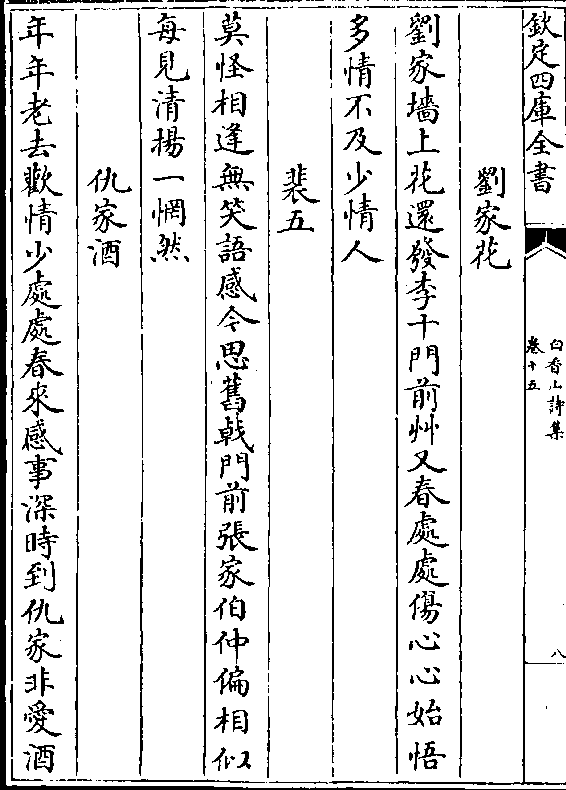 欽定四庫全書
白香山詩集
卷十五
八
劉家花
劉家墻上花還發李十門前艸又春處處傷心心始悟
多情不及少情人
裴五
莫怪相逢無笑語感今思舊戟門前張家伯仲偏相似
每見清揚一惘然
仇家酒
年年老去歡情少處處春來感事深時到仇家非愛酒